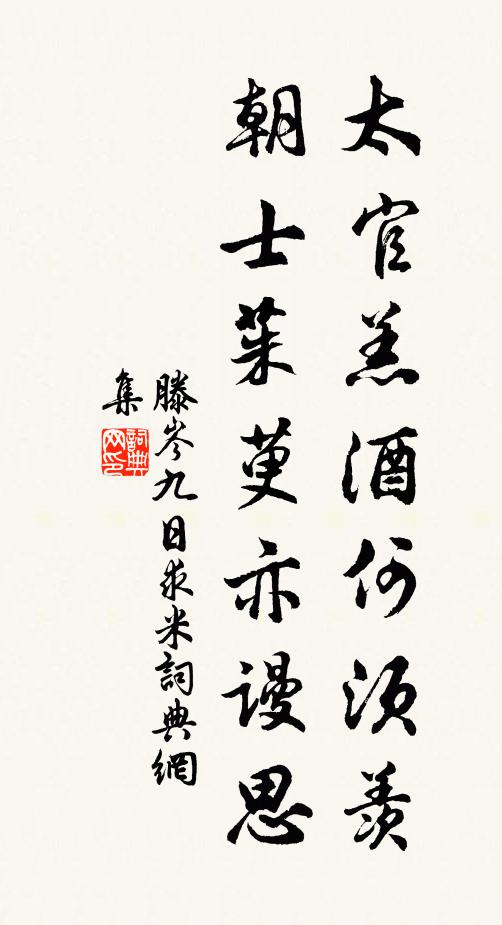 太官羔酒何須羨
朝士茱萸亦謾思
滕岑九日求米詞典網
集
詞典網印